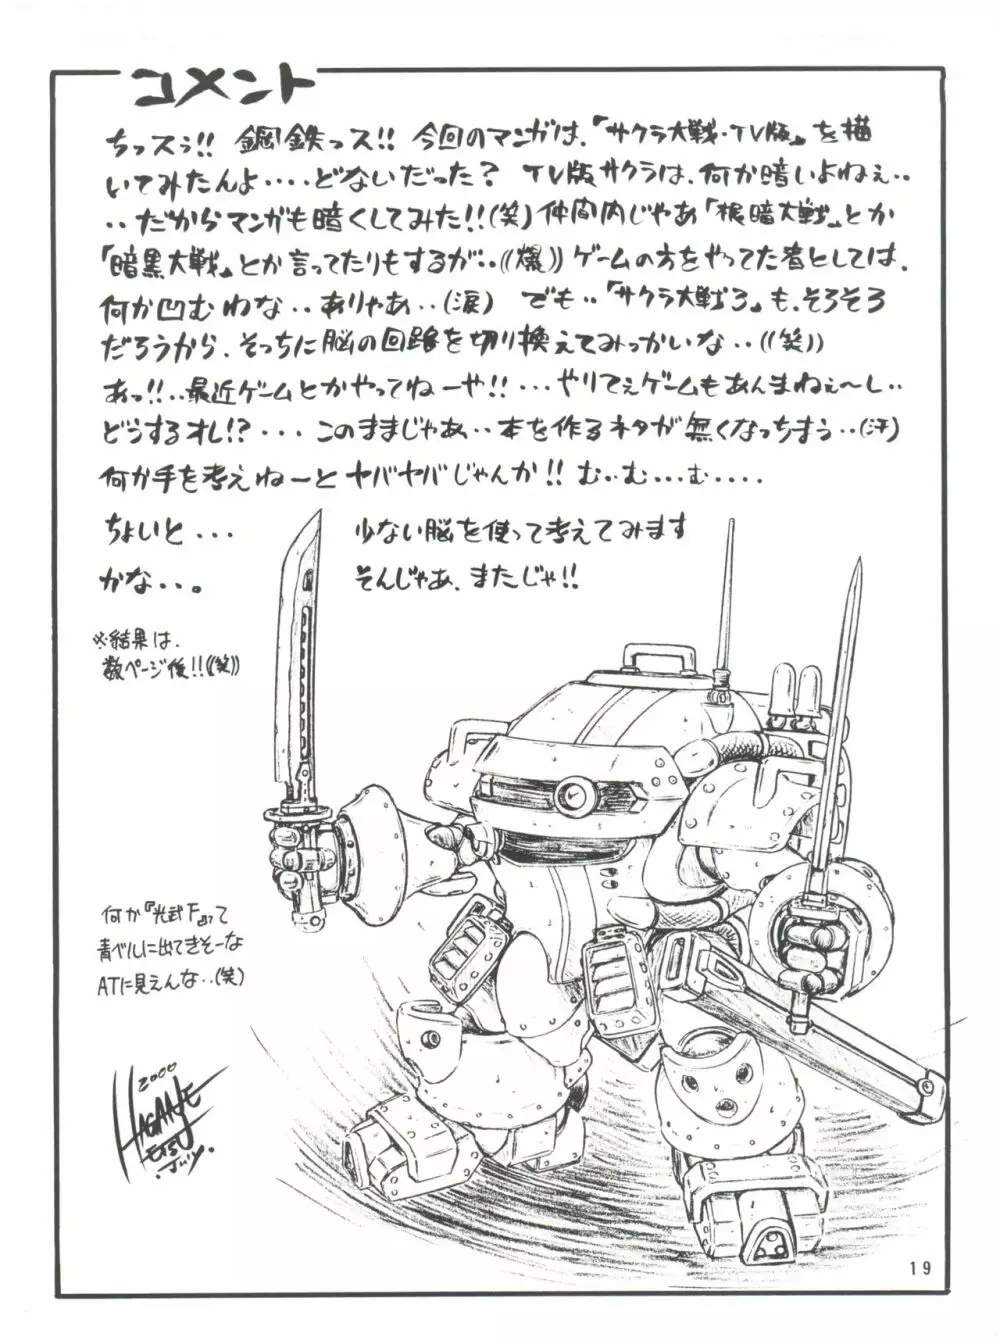 コメント
ちっスぅ!! 鋼鉄っス!! 今回のマンガは、「サクラ大戦・TV版」を描
いてみたんよ････どないだった? TV版サクラは、何か暗いよねぇ･･
･･だからマンガも暗くしてみた!!(笑)仲間内じゃあ「根暗大戦」とか
「暗黒大戦」とか言ってたりもするが･･((爆))ゲームの方をやってた者としては、
何か凹むわな･･ありゃあ･･(涙) でも･･『サクラ大戦3』も、そろそろ
だろうから、そっちに脳の回路を切り換えてみっかいな･･((笑))
あっ!!･･最近ゲームとかやってねーや!!･･･やりてぇゲームもあんまねぇ〜し･･
どうするオレ!?････このままじゃあ･･本を作るネタが無くなっちまう･･(汗)
何か手を考えねーとヤバヤバじゃんか!! む･･む･･･む････
ちょいと･･･ 少ない脳を使って考えてみます
かな･･。 そんじゃあ、またじゃ!!
※結果は、
数ページ後!!((笑))
何か『光武F』って
青ベルに出てきそーな
ATに見えんな･･(笑)
2000
HAGANE
ETSU
July.
19